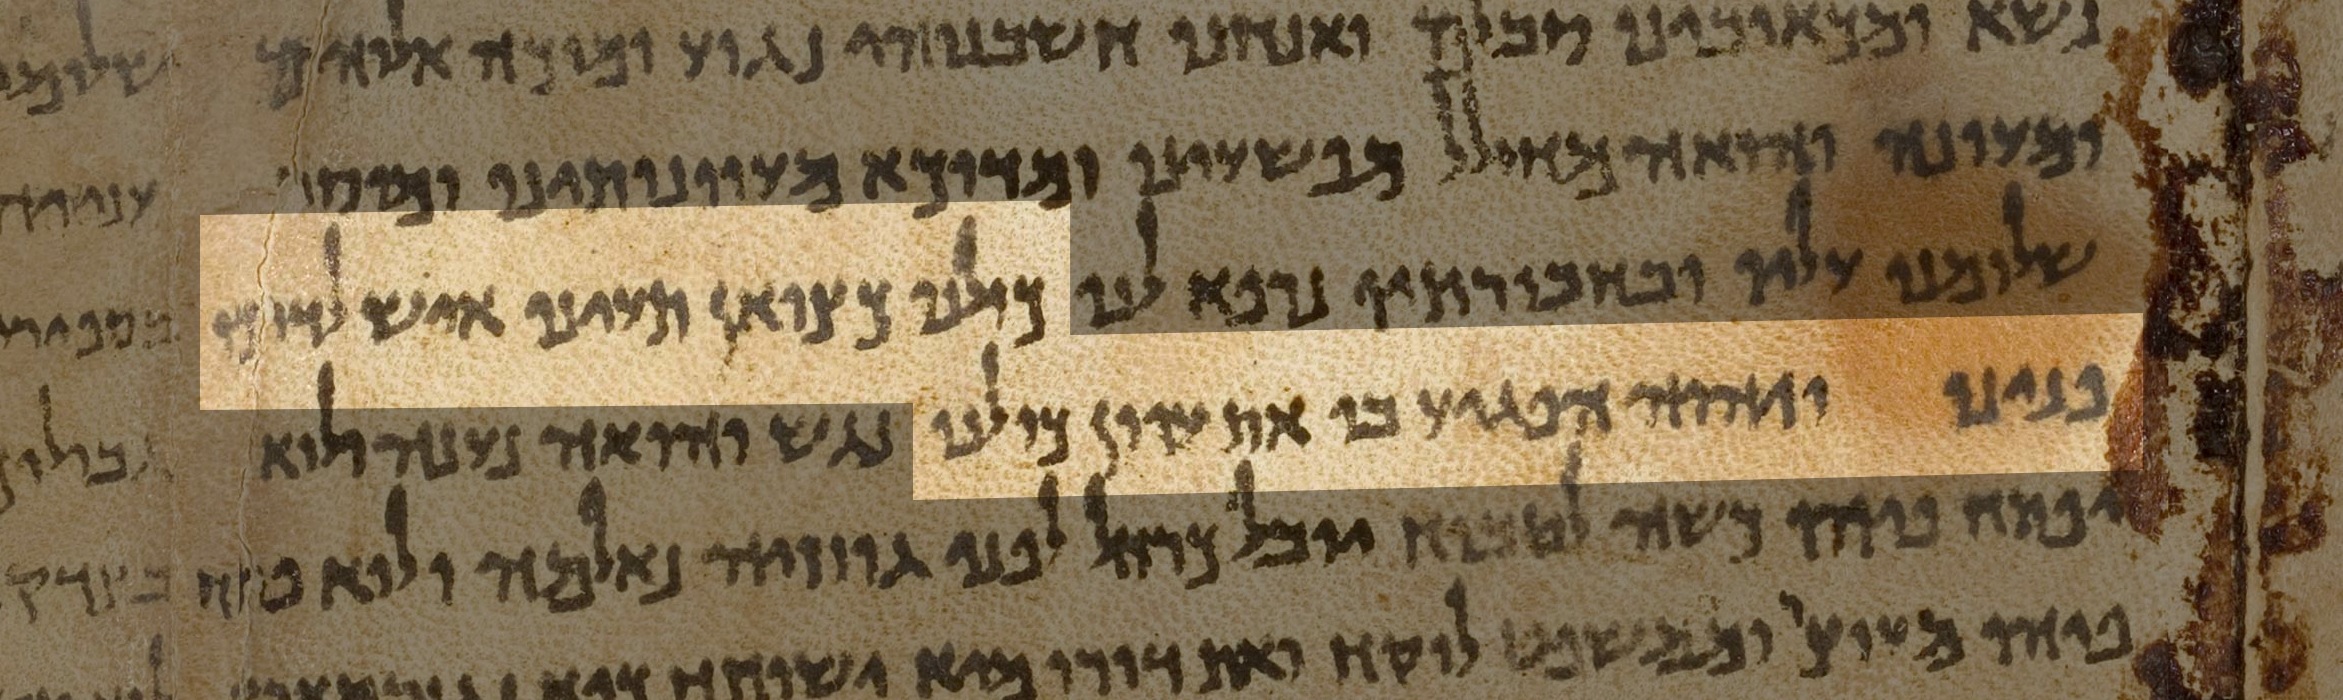 נשא ומכאובינו סבלם ואנחנו חשבנוהו נגוע ומוכה אלוהים
ומעונה והואה מחולל מפשעינו ומדוכא מעוונותינו ומוסר
שלומנו עליו ובחבורתיו נרפא לנו כולנו כצואן תעינו איש לדרכו
פנינו ויהוה הפגיע בו את עוון כולנו נגש והואה נענה ולוא
יפתח פיהו כשה לטבוח יובל כרחל לפני גוזזיה נאלמה ולוא פתח
פיהו מעוצר וממשפט לוקח ואת דורו מיא ישוחח כיא